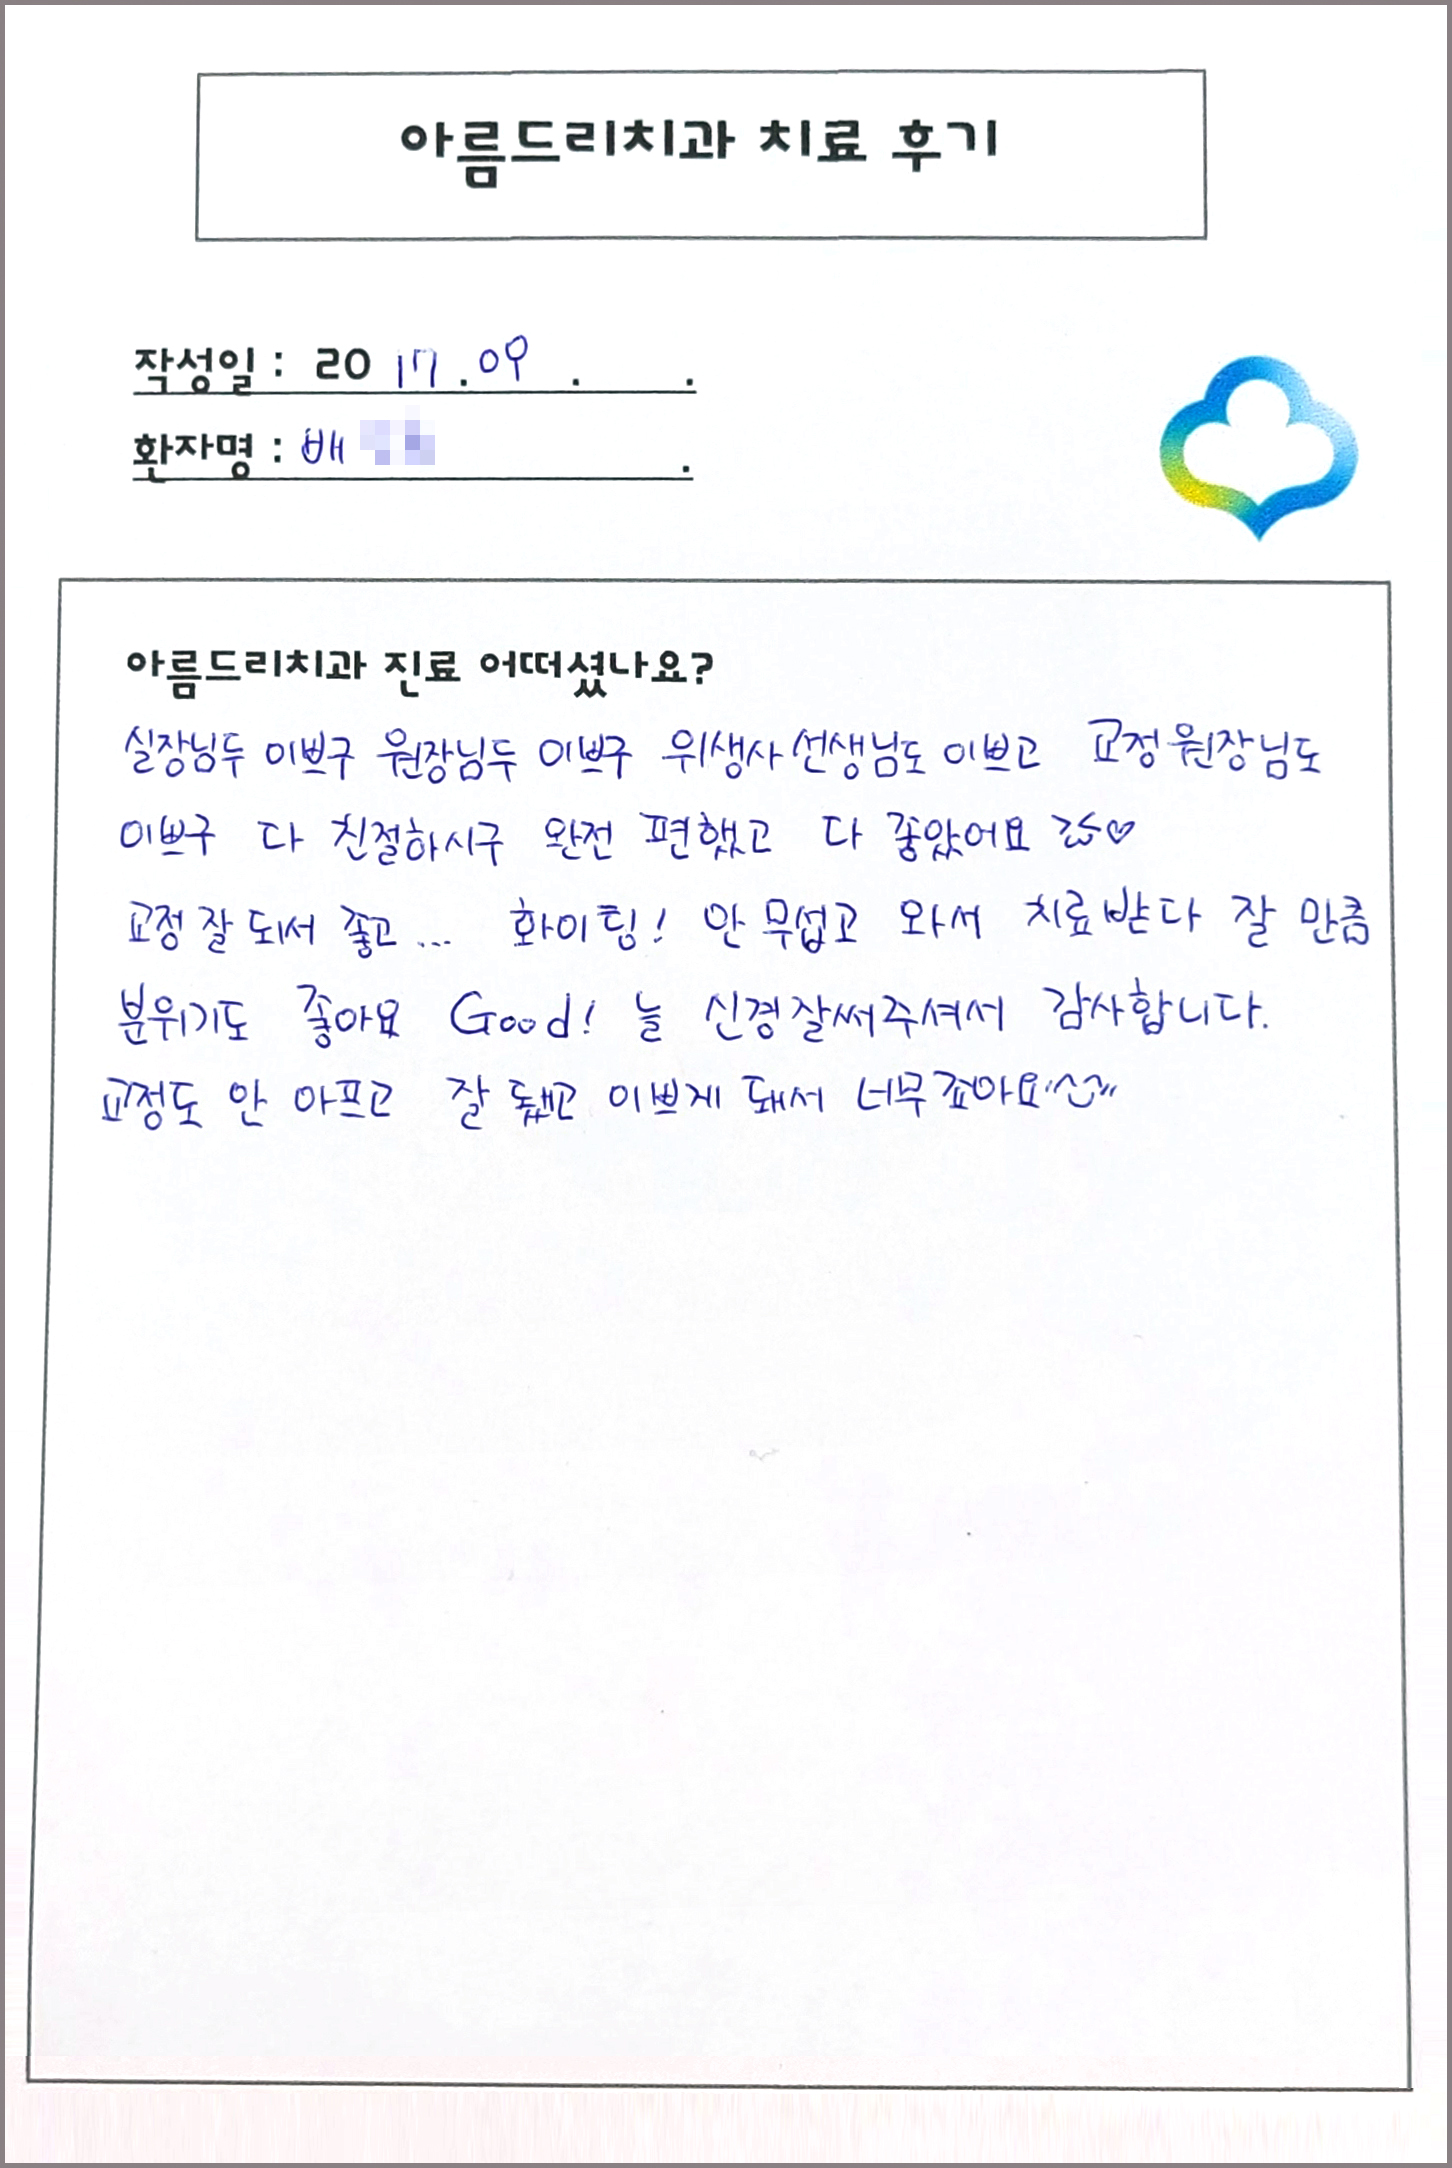 아름드리치과 치료 후기
작성일 : 2017.09 . .
환자명 : 배 .
아름드리치과 진료 어떠셨나요?
실장님두 이쁘구 원장님두 이쁘구 위생사선생님도 이쁘고 교정원장님도
이쁘구 다 친절하시구 완전 편했고 다 좋았어요 ♡
교정 잘 되서 좋고... 화이팅! 안 무섭고 와서 치료받다 잘 만큼
분위기도 좋아요 Good! 늘 신경잘써주셔서 감사합니다.
교정도 안 아프고 잘 됐고 이쁘게 돼서 너무 죠아요